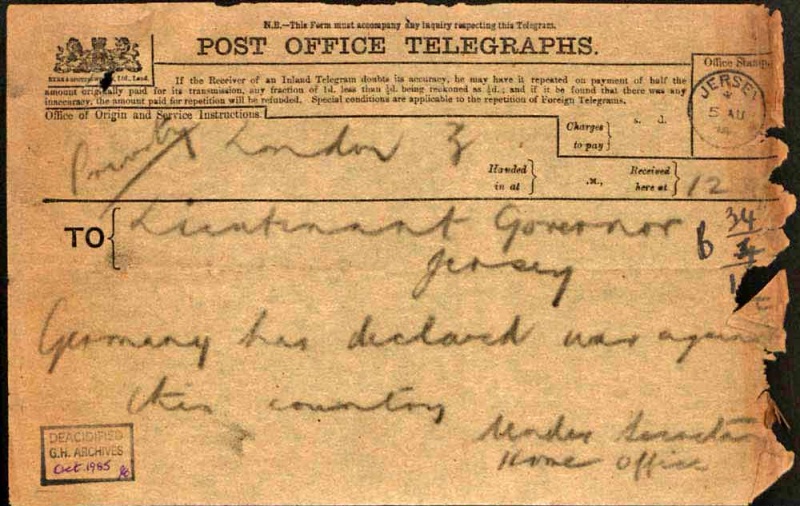 N.B.—This Form must accompany any Inquiry respecting this Telegram.
POST OFFICE TELEGRAPHS.
If the Receiver of an Inland Telegram doubts its accuracy, he may have it repeated on payment of half the
amount originally paid for its transmission, any fraction of 1d. less than ½d. being reckoned as ½d.; and if it be found that there was any
inaccuracy, the amount paid for repetition will be refunded. Special conditions are applicable to the repetition of Foreign Telegrams.
Office Stamp.
JERSEY
5 AU
Office of Origin and Service Instructions.
Charges to pay
s. d.
Priority London
Handed in at
.M.,
Received here at
12
TO
Lieutenant Governor
Jersey
B
34
Germany has declared war again
this country
Under Secretary
Home Office
DEACIDIFIED
G.H. ARCHIVES
Oct. 1985